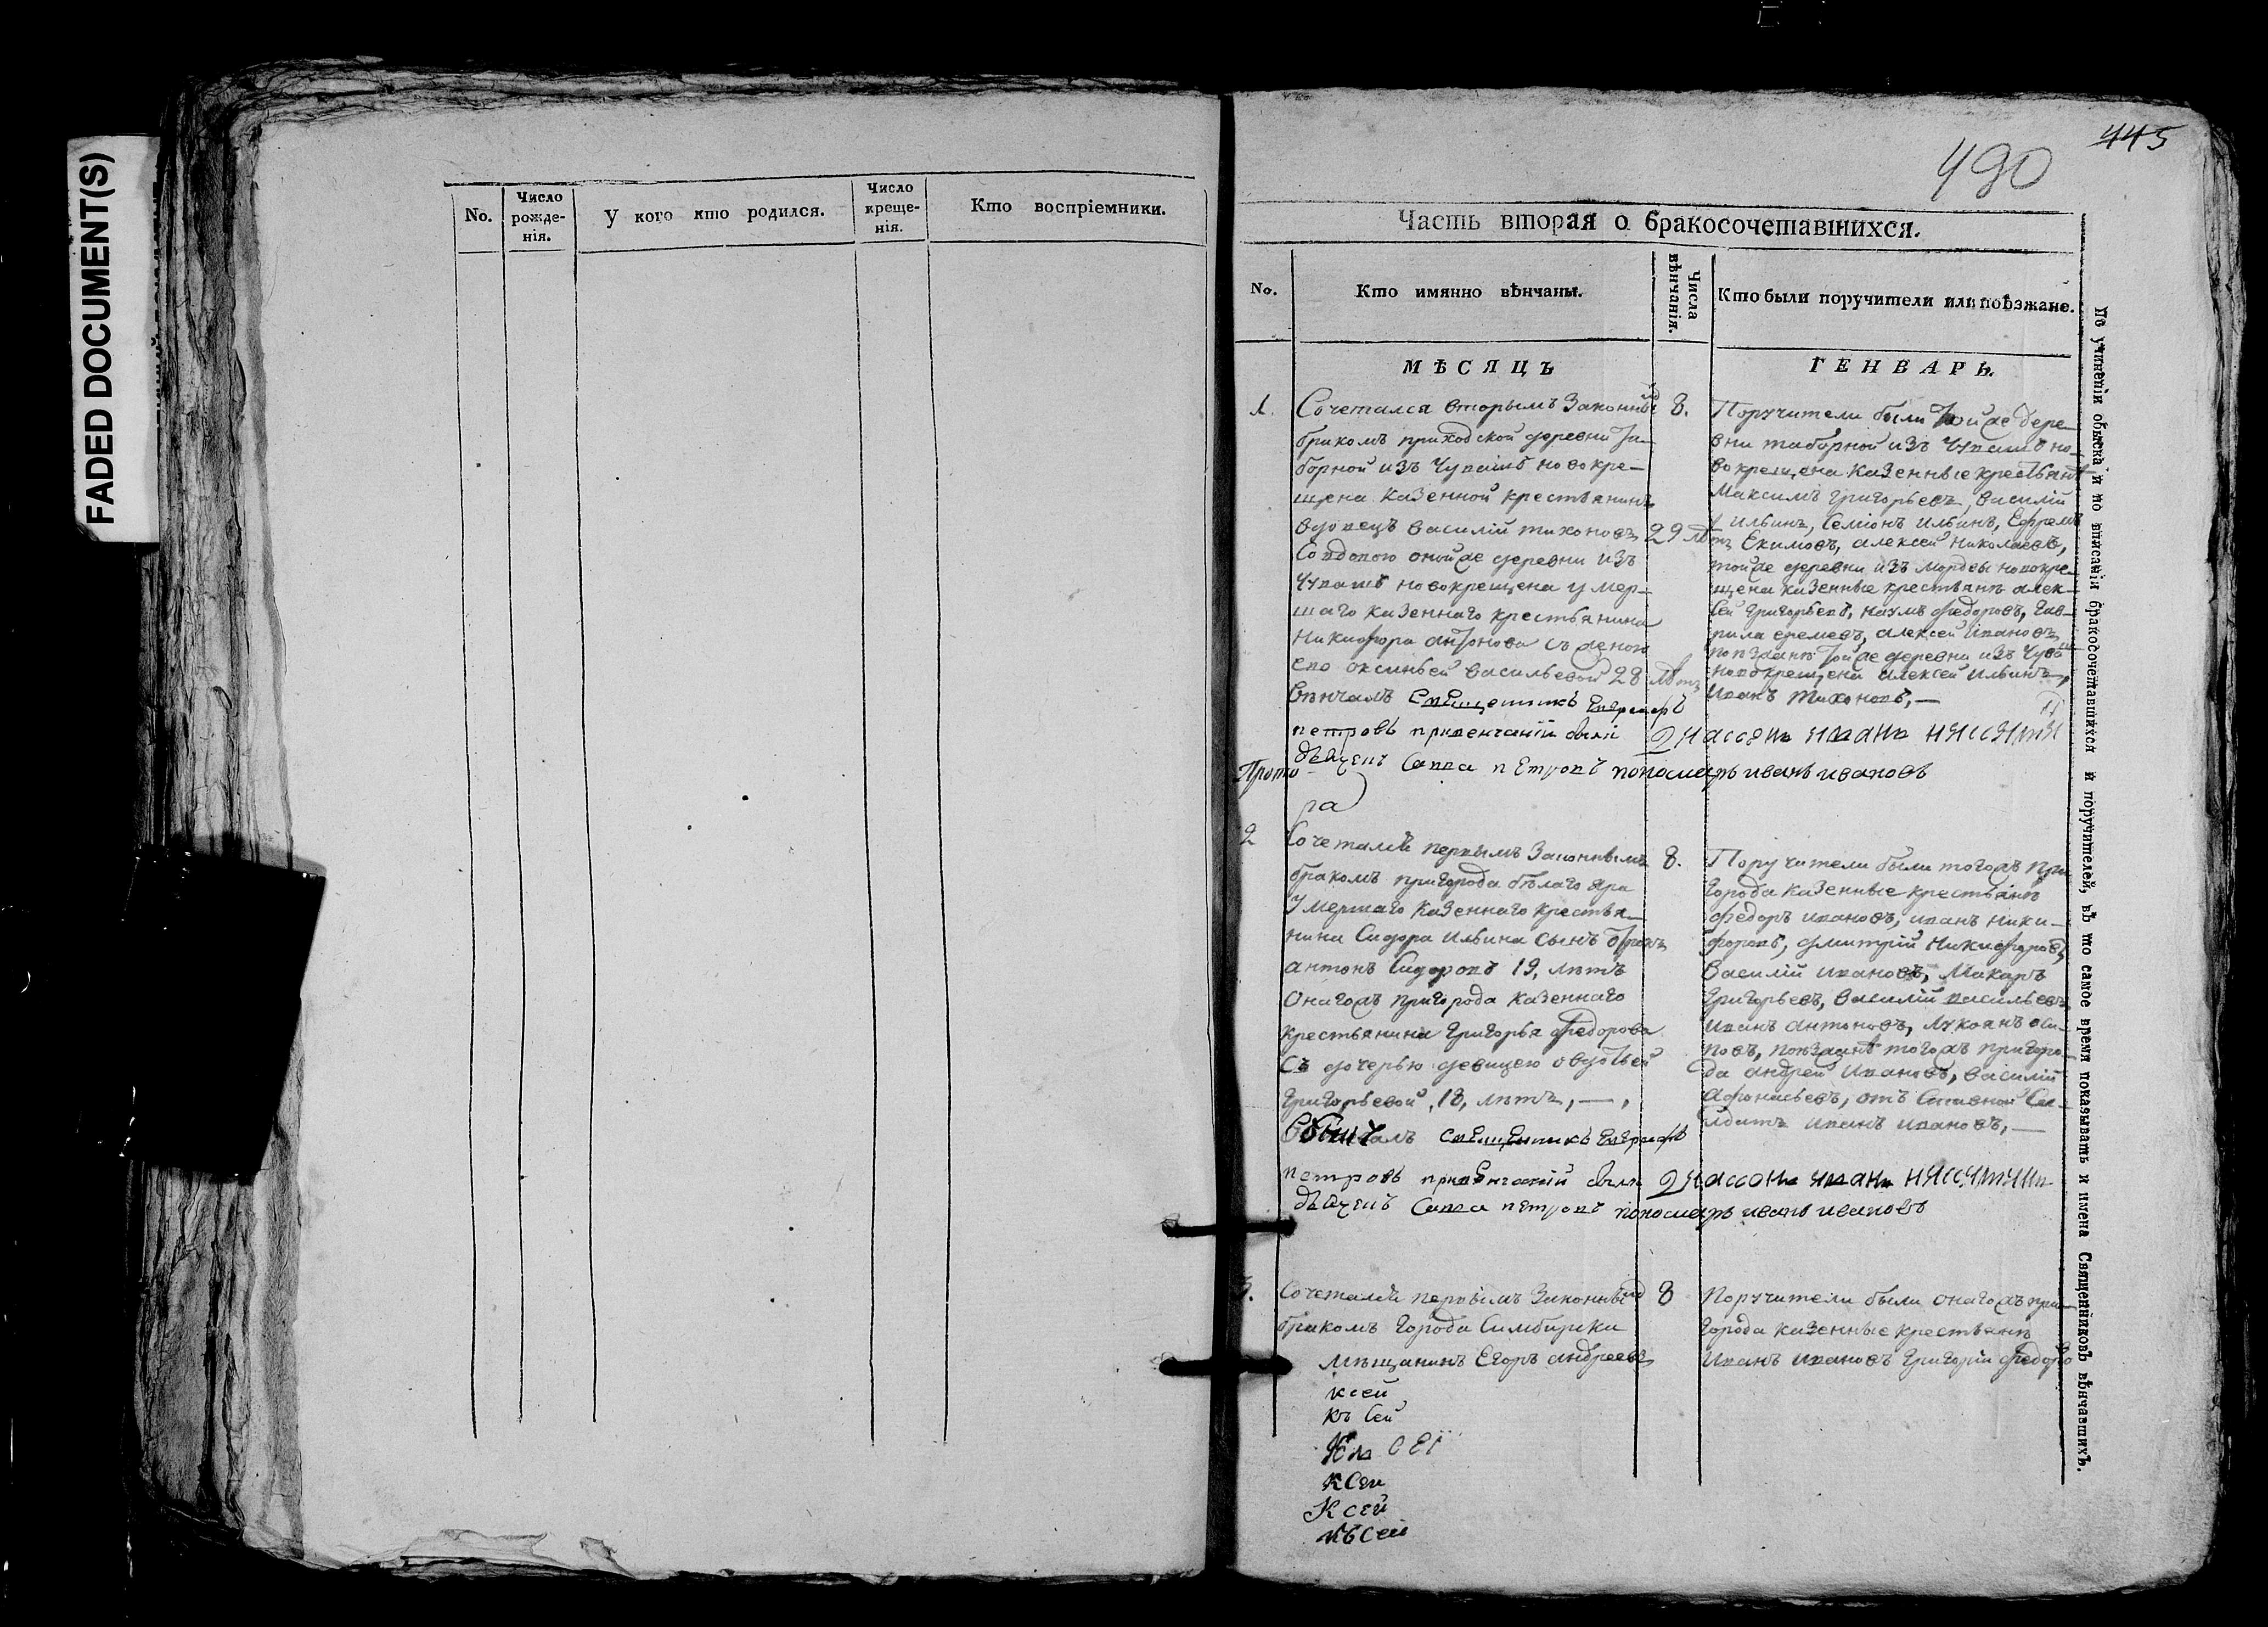 FADED DOCUMENT(S)
No.
Число рожденія.
У кого кто родился.
Число крещенія.
Кто воспріемники.
445
490
Часть вторая о бракосочетавшихся.
No.
Кто имянно вѣнчаны.
Числа вѣнчанія.
Кто были поручители или поѣзжане.
МѢСЯЦЪ
ГЕНВАРЬ.
1.
Сочетался вторымъ законным
бракомъ приходской деревни та-
борной изъ Чувашъ новокре-
щена казенной крестьянинъ
вдовецъ василій тихоновъ 29 лѣтъ
Со вдовою онойже деревни изъ
Чувашъ новокрещена умер-
шаго казеннаго крестьянина
Никифора антонова съ женою
его оксиньей васильевой 28 лѣтъ
Венчалъ Священникъ
петровъ привенчаніи были
Савва петровъ пономаръ иванъ ивановъ
8.
Поручители были тойже дере-
вни таборной изъ Чувашъ но-
вокрещена казенные крестьянѣ
Максимъ григорьевъ, василій
ильинъ, Семіонъ ильинъ, Ефремъ
Екимовъ, алексей николаевъ,
тойже деревни изъ мордвы новокре-
щена казенные крестьянѣ алек-
сей григорьевъ, наумъ федоровъ, гав-
рила еремеевъ, алексей ивановъ,
поезжанѣ тойже деревни изъ чуваш
новокрещена алексей ильинъ,
иванъ тихоновъ,—
2
Сочетался первымъ законнымъ
бракомъ пригорода бѣлаго яра
Умершаго казеннаго крестья-
нина Сидора ильина сынъ отрокъ
антонъ Сидоровъ 19, лѣтъ
Онагожъ пригорода казеннаго
крестьянина григорья федорова
Съ дочерью девицею овдотьей
григорьевой, 18, лѣтъ, —,
Священникъ
петровъ привенчаніи были
Савва петровъ пономаръ иванъ ивановъ
8.
Поручители были тогожъ при
города казенные крестьянѣ
федоръ ивановъ, иванъ ники-
форовъ, дмитрій никифоровъ,
василій ивановъ, Макаръ
григорьевъ, василій васильевъ
иванъ антоновъ, лукоянъ оси-
повъ, поезжанѣ тогожъ пригоро-
да андрей ивановъ, василій
Афонасьевъ, отъ Ставной Сол-
датъ иванъ ивановъ, —
3.
Сочетался первымъ законным
бракомъ города Симбирска
мѣщанинъ Егоръ андреевъ
8
Поручители были онагожъ при-
города казенные крестьянѣ
иванъ ивановъ григорій федоро
ксей
къ сей
ксей
Ксей
къ сей
По учиненіи обыска и по вписаніи бракосочетавшихся и поручителей, въ то самое время показывать и имена Священниковъ вѣнчавшихъ.